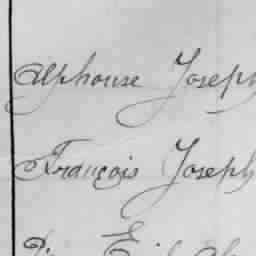 Alphonse Joseph
François Joseph